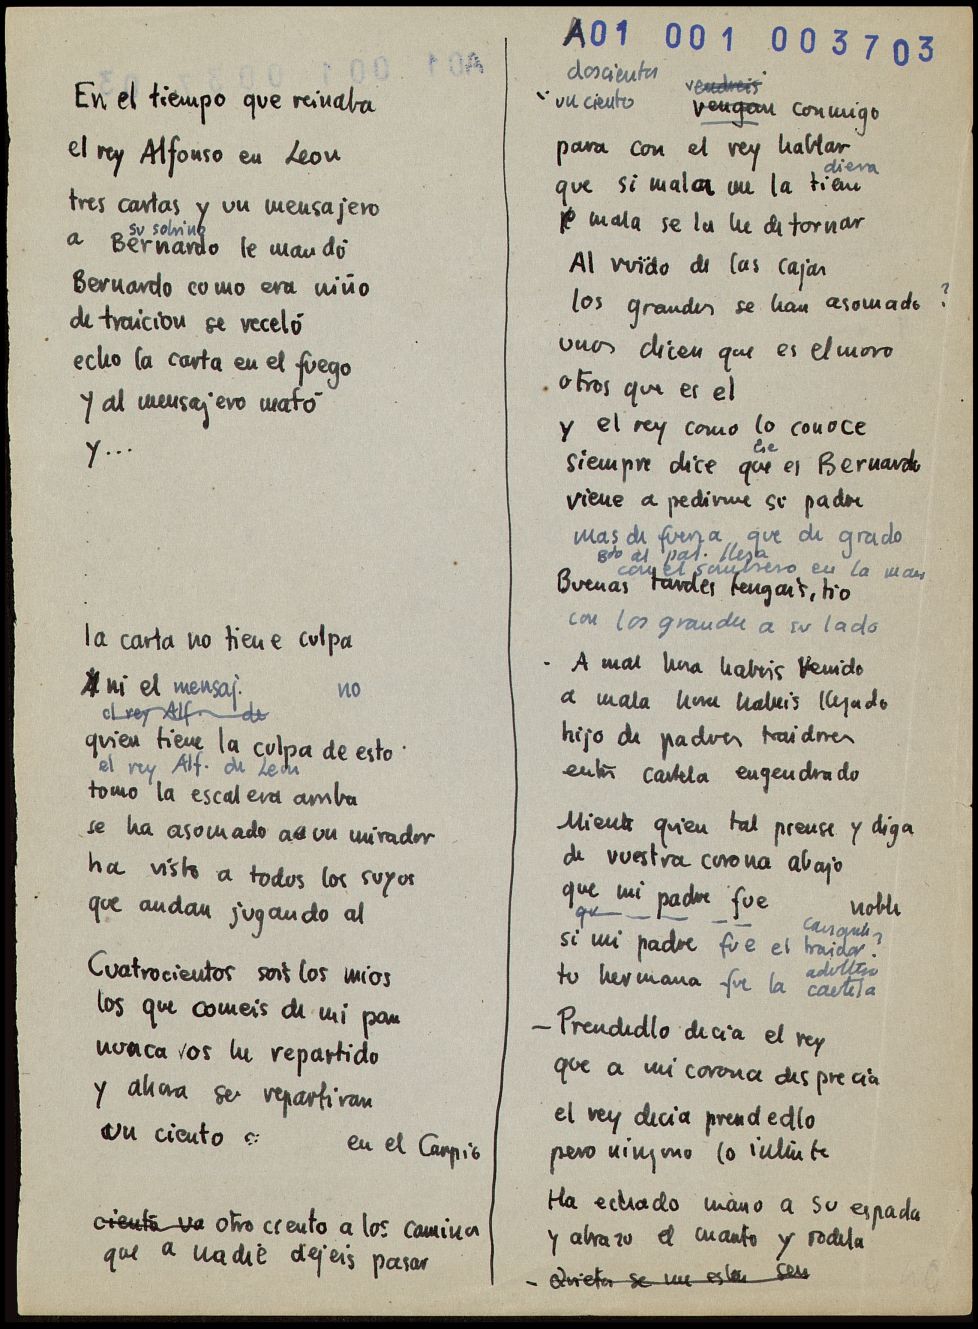 En el tiempo que reinaba
el rey Alfonso en Leon
tres cartas y un mensajero
su sobrino
a Bernardo le mandó
Bernardo como era niño
de traicion se receló
echo la carta en el fuego
y al mensajero mató
y...
la carta no tiene culpa
ni el mensaj. no
el rey Alf. de
quien tiene la culpa de esto
el rey Alf. de Leon
tomo la escalera arriba
se ha asomado a un mirador
ha visto a todos los suyos
que andan jugando al
Cuatrocientos sois los mios
los que comeis de mi pan
nunca os he repartido
y ahora se repartiran
un ciento en el Carpio
ciento va otro ciento a los caminos
que a nadie dejeis pasar
A01 001 003703
doscientos vendreis
un ciento vengan conmigo
para con el rey hablar
diera
que si mala me la tiene
mala se la he de tornar
Al ruido de las cajas
los grandes se han asomado ?
unos dicen que es el moro
otros que es el
y el rey como lo conoce
ese
siempre dice que es Bernardo
viene a pedirme su padre
mas de fuerza que de grado
Bdo al pal. llega
con el sombrero en la mano
Buenas tardes tengais, tio
con los grandes a su lado
- A mal hora habeis venido
a mala hora habeis llegado
hijo de padres traidores
entre cautela engendrado
Miente quien tal piense y diga
de vuestra corona abajo
que mi padre fue noble
que
si mi padre fue el traidor?
adulterio
tu hermana fue la cautela
- Prendedlo decia el rey
que a mi corona desprecia
el rey decia prendedlo
pero ninguno lo intente
Ha echado mano a su espada
y abrazo el manto y rodela
- Quieto se me esten